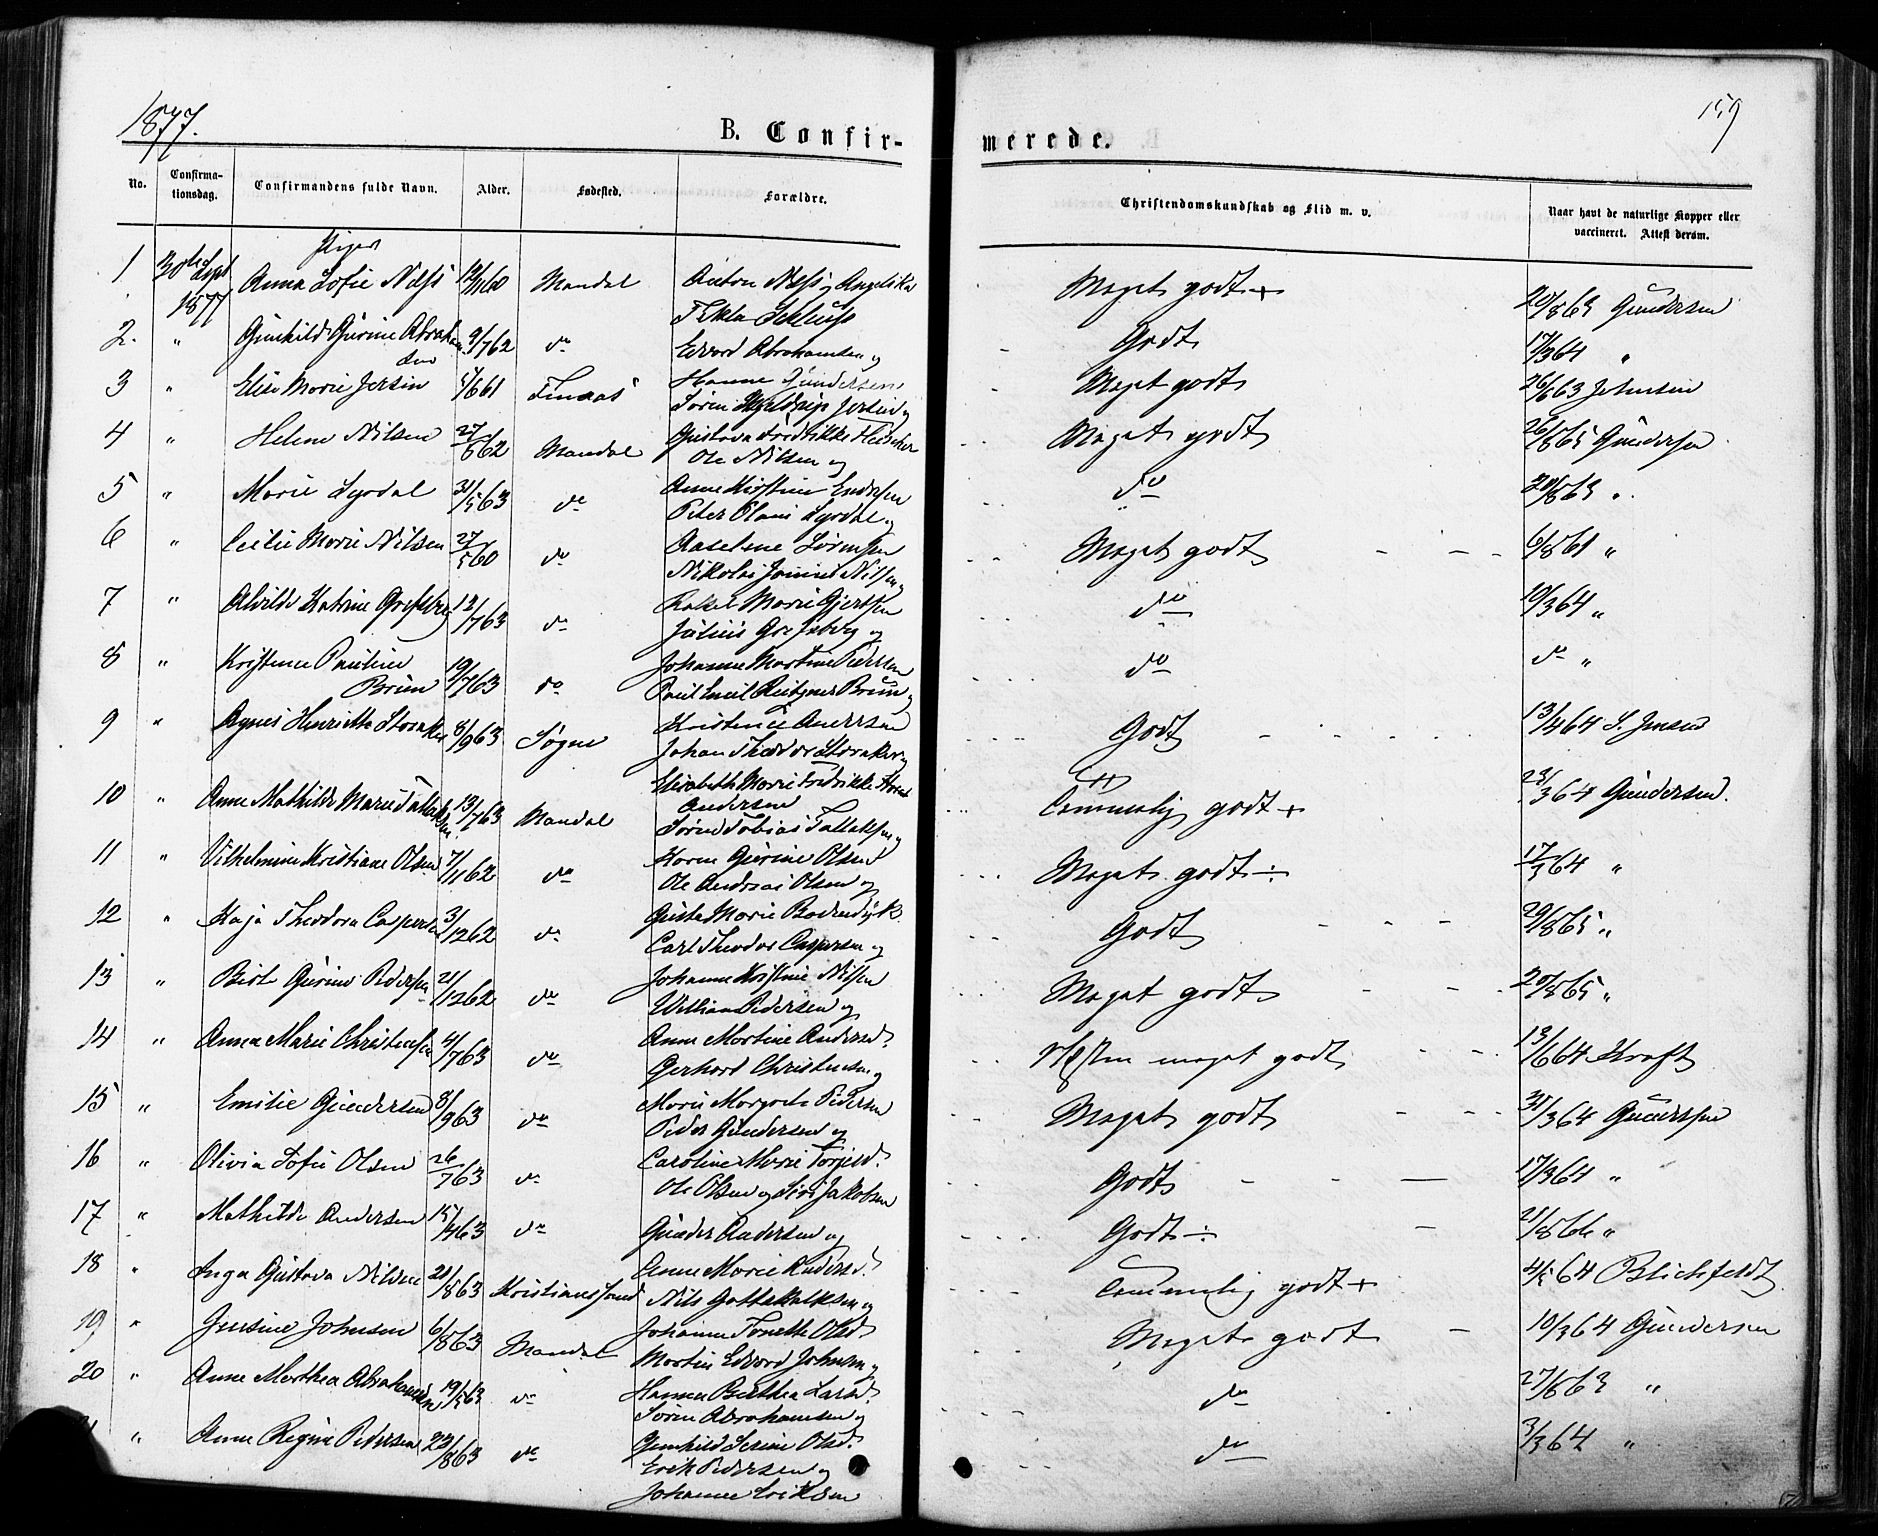 1877.
159
B. Confir-
merede.
No.
Confirma-
tionsdag.
Confirmandens fulde Navn.
Alder.
Fødested.
Forældre.
Christendomskundskab og Flid m. v.
Naar havt de naturlige Kopper eller
vaccineret. Attest derom.
Piger
1 30te Sept 1877 Anna Sofie Nils
Mandal
Anton Nils og Angelika
Tekla
Meget godt +
20/8 63 Gundersen
2. " Gunhild Gurine Abraham
sen
9/7 62 do
Edvard Abrahamsen og
Hanne Gundersen
Godt
17/3 64 "
3 " Elise Marie Jersin
61
Søren Jersin og
Gustava Fredrikke
Meget godt
26/6 63 Johnsen
4 " Helene Nilsen
27/6 62 Mandal
Ole Nilsen og
Anne Kirstine Endresen
Meget godt
26/8 65 Gundersen
5 " Marie Lyrdal
31/5 63 do
Peter Olaus Lyrdal og
Aaselene Sørensen
do
20/8 63 "
6 " Cecilie Marie Nilsen
27/5 60 do
Nikolai Nilsen og
Rakel Marie Gjertsen
Meget godt
6/8 61 "
7 " Alvilde Katrine Grefsberg
12/7 63 do
Julius Grefsberg og
Johanne Martine Pedersen
do
10/3 64 "
8 " Kristence Pauline
Bruun
19/7 63 do
Paul Emil Bruun og
Kristence Andersen
do
do "
9 " Agnes Henriette Storaker
8/9 63 Søgne
Johan Theodor Storaker og
Elisabeth Marie Fredrikke
Andersen
Godt
13/4 64 S. Jensen
10 " Anne Mathilde Marie Tallaksen
13/7 63 Mandal
Søren Tobias Tallaksen og
Karen Gurine Olsen
Temmelig godt +
23/3 64 Gundersen.
11 " Vilhelmine Kristiane Olsen
7/11 62 do
Ole Andreas Olsen og
Gusta Marie
Meget godt ÷
17/3 64 "
12 " Kaja Theodora Caspersen
3/12 62 do
Carl Theodor Caspersen og
Johanne Kristine Nilsen
Godt
29/8 65 "
13 " Birte Gurine Pedersen
21/12 62 do
Pedersen og
Anne Martine Andersd.
Meget godt
20/8 65 "
14 " Anna Marie Christensen
4/7 63 do
Gerhard Christensen og
Maren Margrete Pedersen
Næsten meget godt
13/6 64 Kraft
15 " Emilie Gundersen
8/9 63 do
Peder Gundersen og
Caroline Marie Torjesd.
Meget godt
31/3 64 Gundersen
16 " Olivia Sofie Olsen
26/7 63 do
Ole Olsen og Siri Jakobsen
Godt
17/3 64 "
17 " Mathilde Andersen
15/4 63 do
Gunder Andersen og
Anne Marie Andersd.
Godt ÷
21/8 66 "
18 " Inga Gustava Nilsen
21/8 63 Kristianssand
Nils Gottskalksen og
Johanne Tonette Olsd.
Temmelig godt +
4/5 64 Blichfeldt
19 " Jensine Johnsen
6/8 63 Mandal
Martin Edvard Johnsen og
Hanna Berthea Larsd.
Meget godt
10/3 64 Gundersen
20 " Anne Marthea Abrahamsen
19/5 63 do
Søren Abrahamsen og
Gunhild Serine Olsd.
do
27/8 63 "
" Anne Regine Pedersen
23/8 63 do
Erik Pedersen og
Johanne Eriksen
do
3/3 64 "